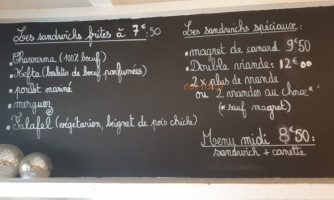 Les sandwichs frites à 7€50
• Chawarma (100% bœuf)
• Kefta (boulettes de bœuf parfumées)
• poulet mariné
• merguez
• Falafel (végétarien, beignet de pois chiche)
Les sandwichs spéciaux :
• magret de canard 9€50
• Double viande : 12€00
2 x plus de viande
ou 2 viandes au choix*
(* sauf magret)
Menu midi 8€50 :
sandwich + canette